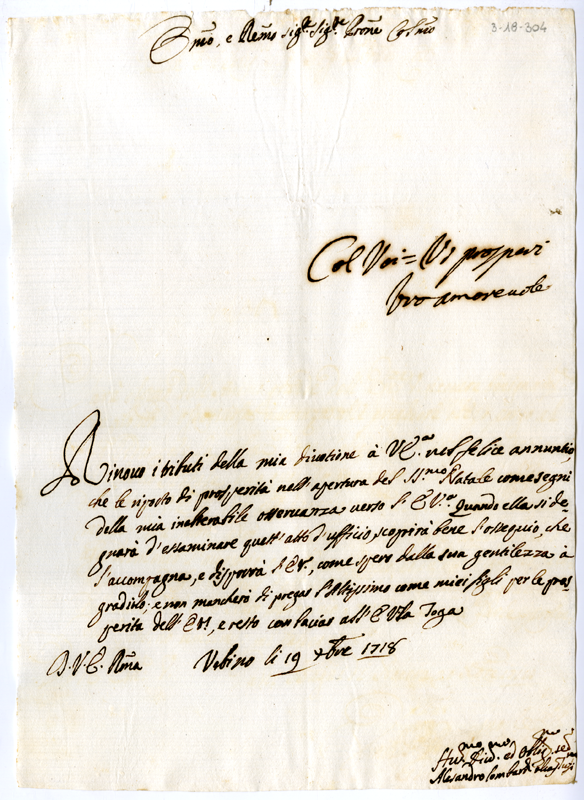 Emo, e Remo Sigr Sigr Prone Colmo
3-18-304
prosperi
amoreuole
Rinouo i tributi della mia diuotione à V.E. nel felice annuntio
che le riporto di prosperità nell'apertura del SS.mo Natale come segni
della mia inalterabile osseruanza verso l'E.V. Quando ella si de,
gnarà d'essaminare quest'atto d'ufficio, scoprirà bene l'ossequio, che
l'accompagna, e disporrà l'E.V. come spero dalla sua gentilezza à
gradirlo; e non mancherò di pregar l'Altissimo come miei figli per le pros,
perità dell'E.V., e resto con baciar all'E. Vra Toga
D.V.E. Rma Vrbino li 19 Xbre 1718
Diu. ed Oblig. ser
Alesandro Lombardi